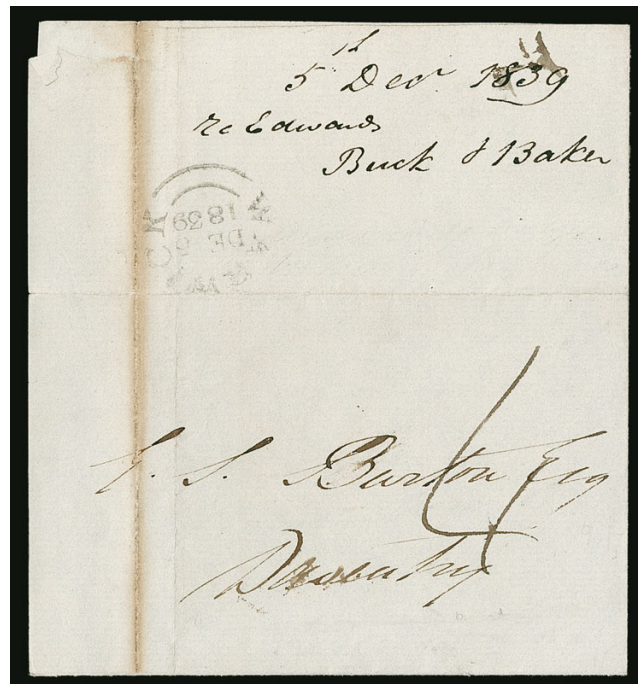 5th Decr 1839
re Edwards
Buck & Baker
WARWICK
DE 5
1839
4
E. S. Burton Esq
Daventry